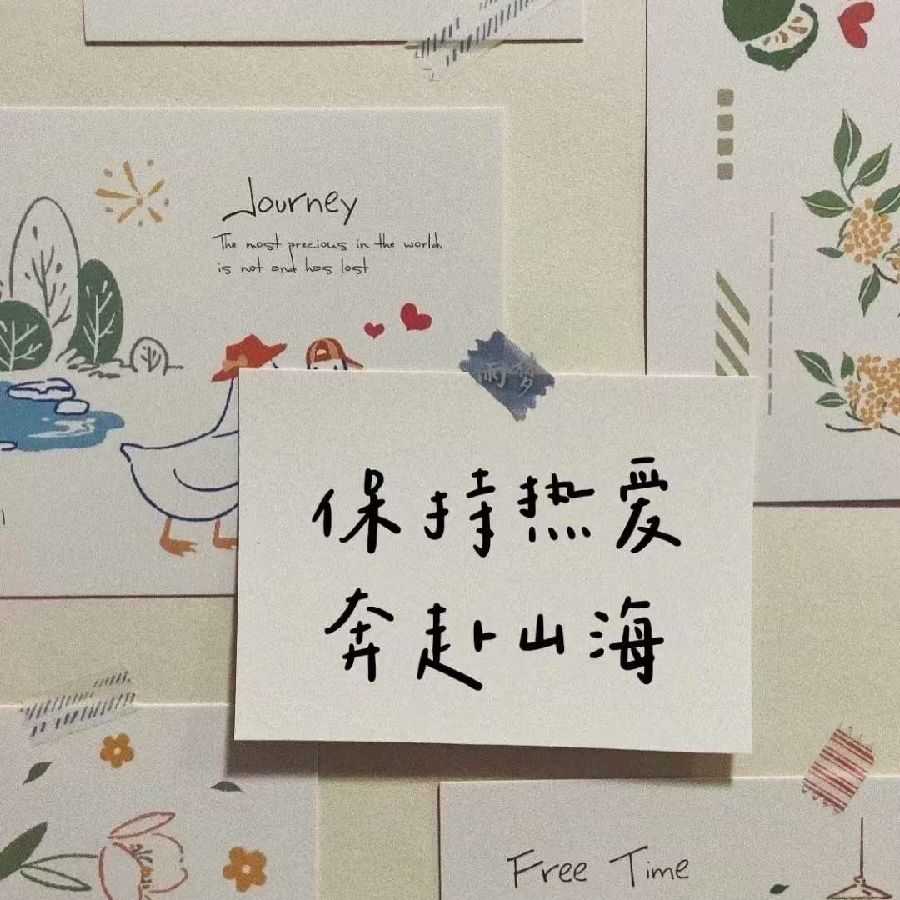 Journey
The most precious in the world.
is not and has lost
雨梦
保持热爱
奔赴山海
Free Time